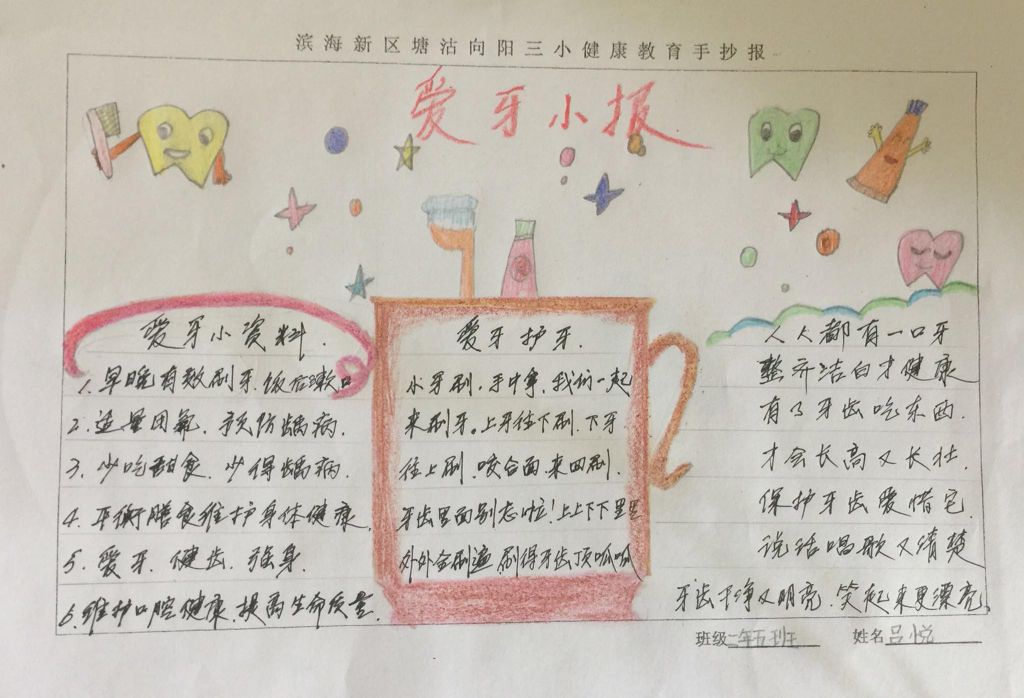 滨海新区塘沽向阳三小健康教育手抄报
爱牙小报
爱牙小资料.
1.早晚有效刷牙.饭后漱口
2.适量用氟.预防龋病.
3.少吃甜食.少得龋病.
4.平衡膳食维护身体健康.
5.爱牙.健齿.强身.
6.维护口腔健康.提高生命质量.
爱牙护牙.
小牙刷.手中拿.我们一起
来刷牙.上牙往下刷.下牙
往上刷.咬合面.来回刷.
牙齿里面别忘啦!上上下下里里
外外全刷遍.刷得牙齿顶呱呱
人人都有一口牙
整齐洁白才健康
有了牙齿吃东西.
才会长高又长壮.
保护牙齿爱惜它
说话唱歌又清楚
牙齿干净又明亮.笑起来更漂亮.
班级二年五班 姓名吕悦